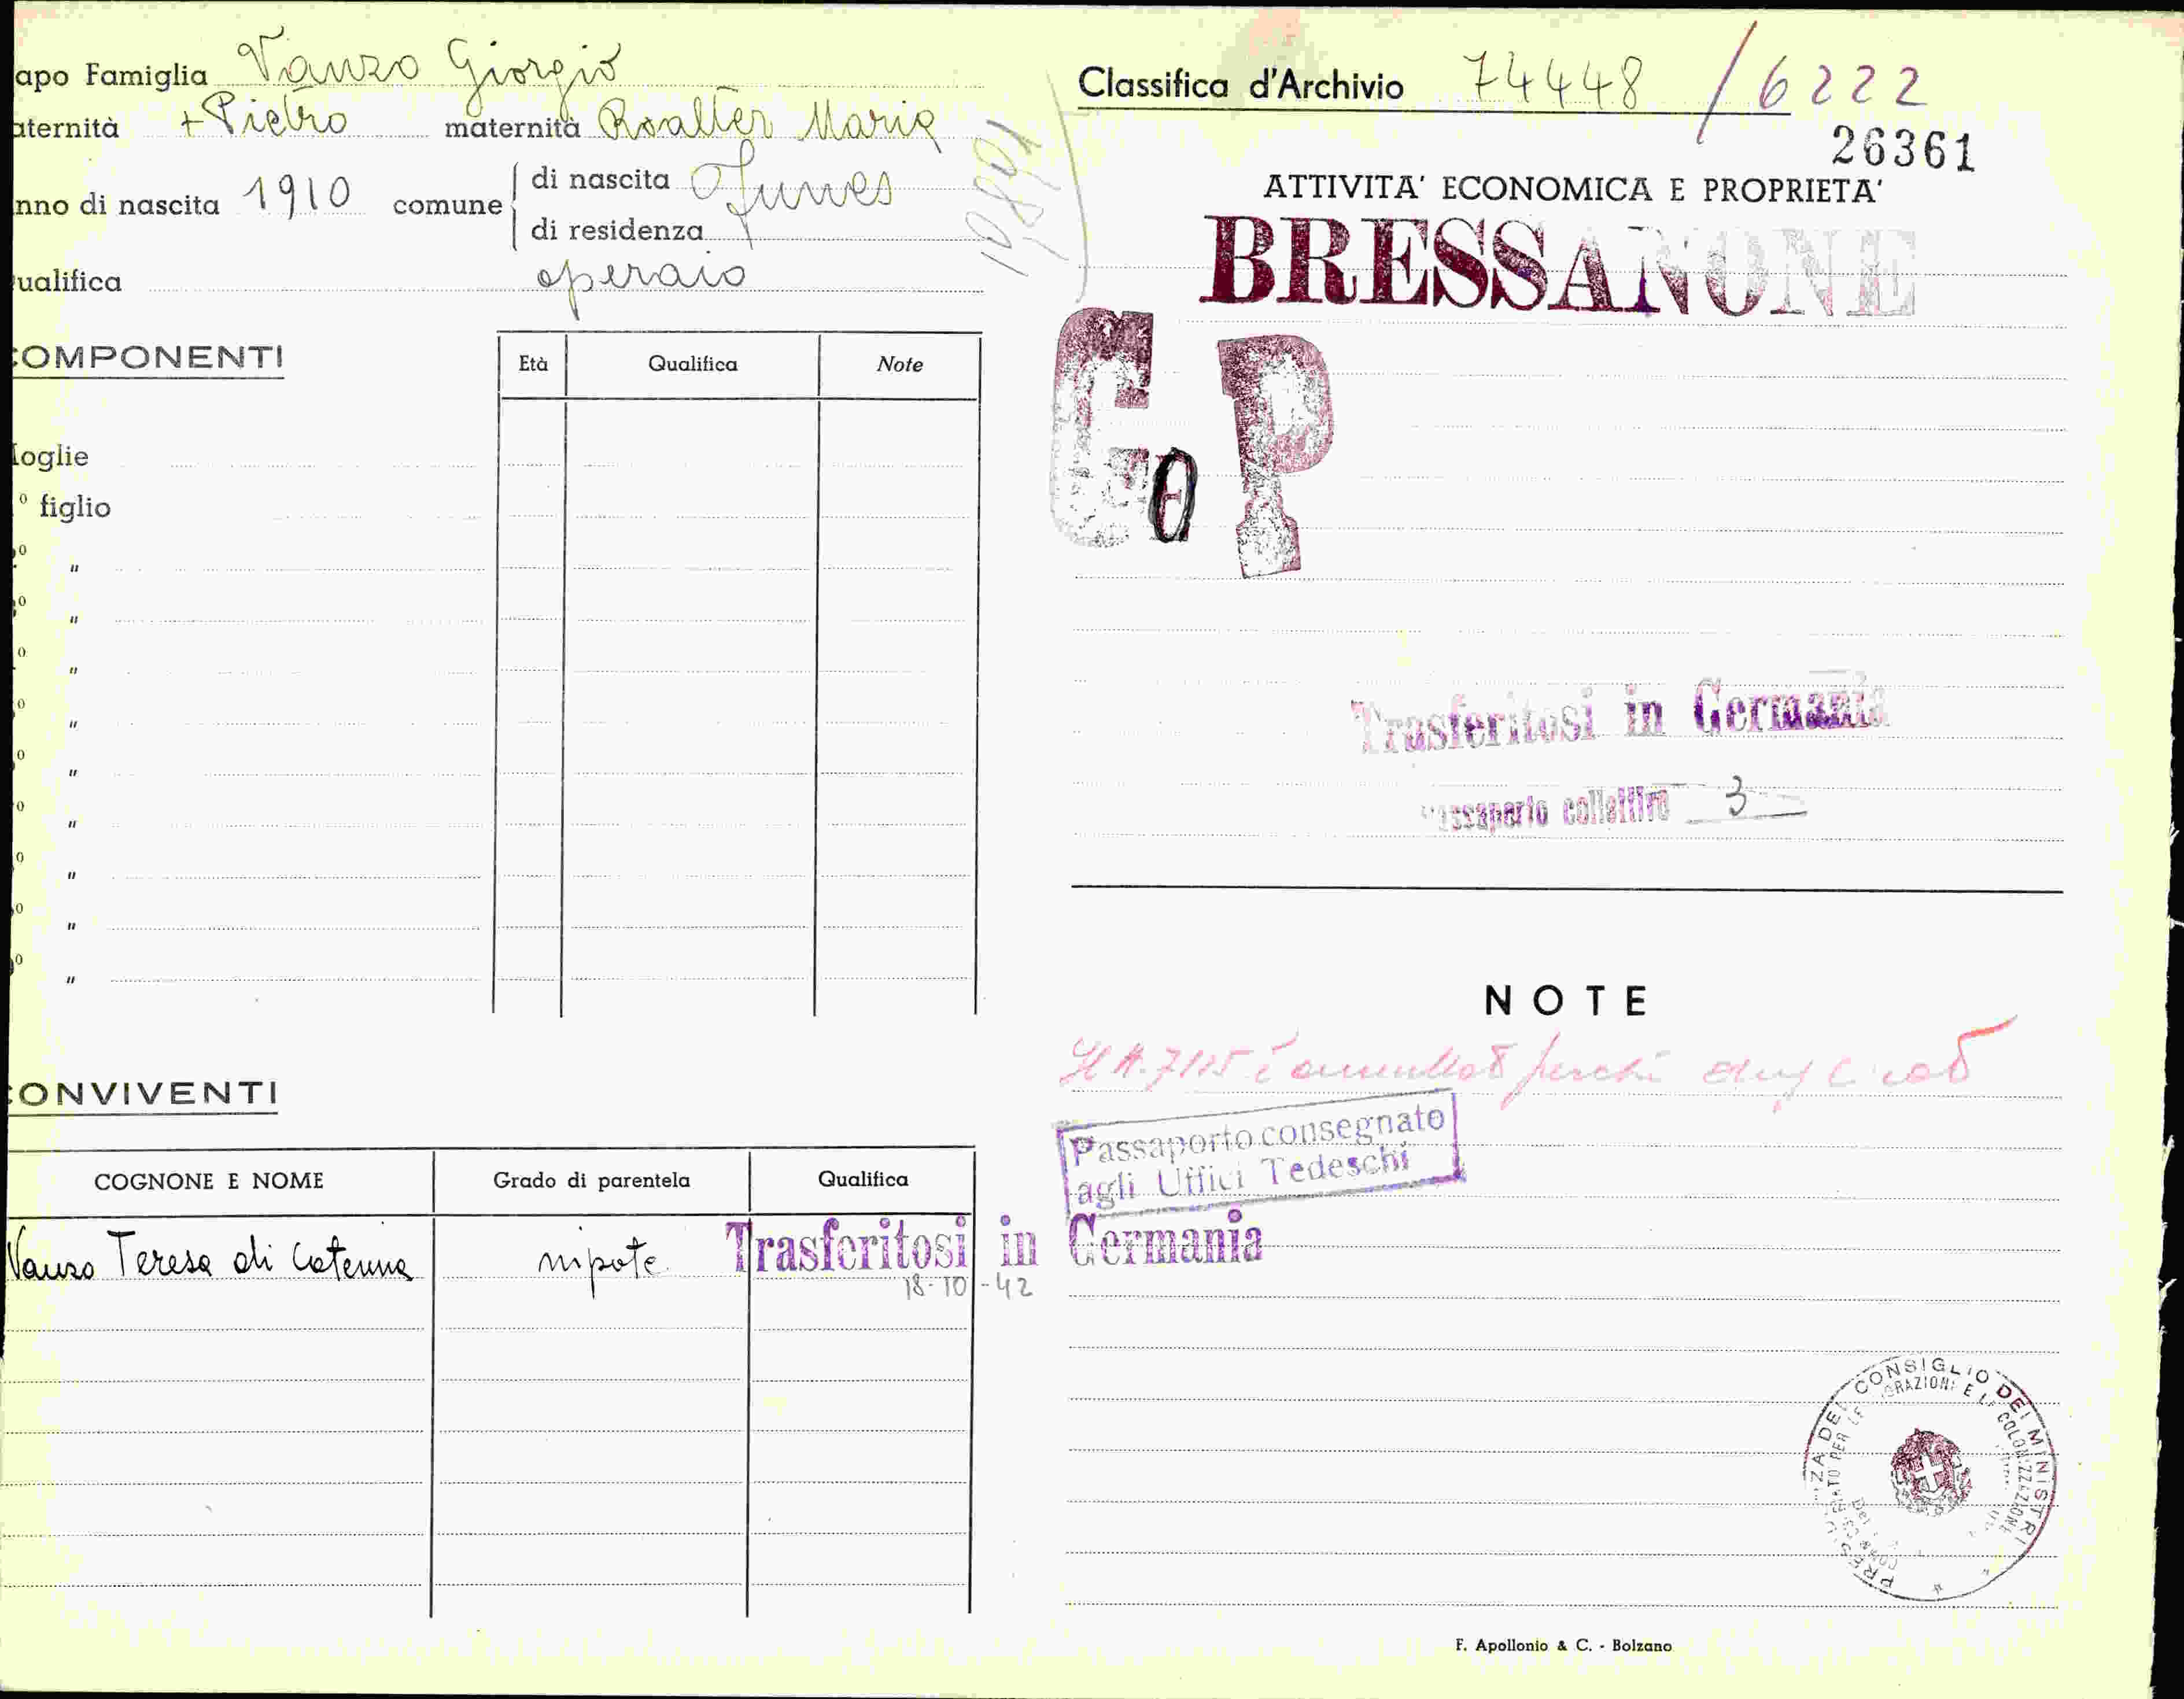 apo Famiglia Vanzo Giorgio
aternità + Pietro maternità Roalter Maria
nno di nascita 1910 comune di nascita Funes
di residenza
ualifica operaio
OMPONENTI
Età Qualifica Note
oglie
º figlio
º "
º "
º "
º "
º "
º "
º "
º "
º "
ONVIVENTI
COGNONE E NOME Grado di parentela Qualifica
Vanzo Teresa di Caterina nipote Trasferitosi in Germania
18-10-42
Classifica d'Archivio 74448 / 6222
26361
ATTIVITA' ECONOMICA E PROPRIETA'
BRESSANONE
G P
0
Trasferitosi in Germania
Passaporto collettivo 3
NOTE
Il N. 7115 è annullato perchè
Passaporto consegnato
agli Uffici Tedeschi
CONSIGLIO DEI MINISTRI
F. Apollonio & C. - Bolzano